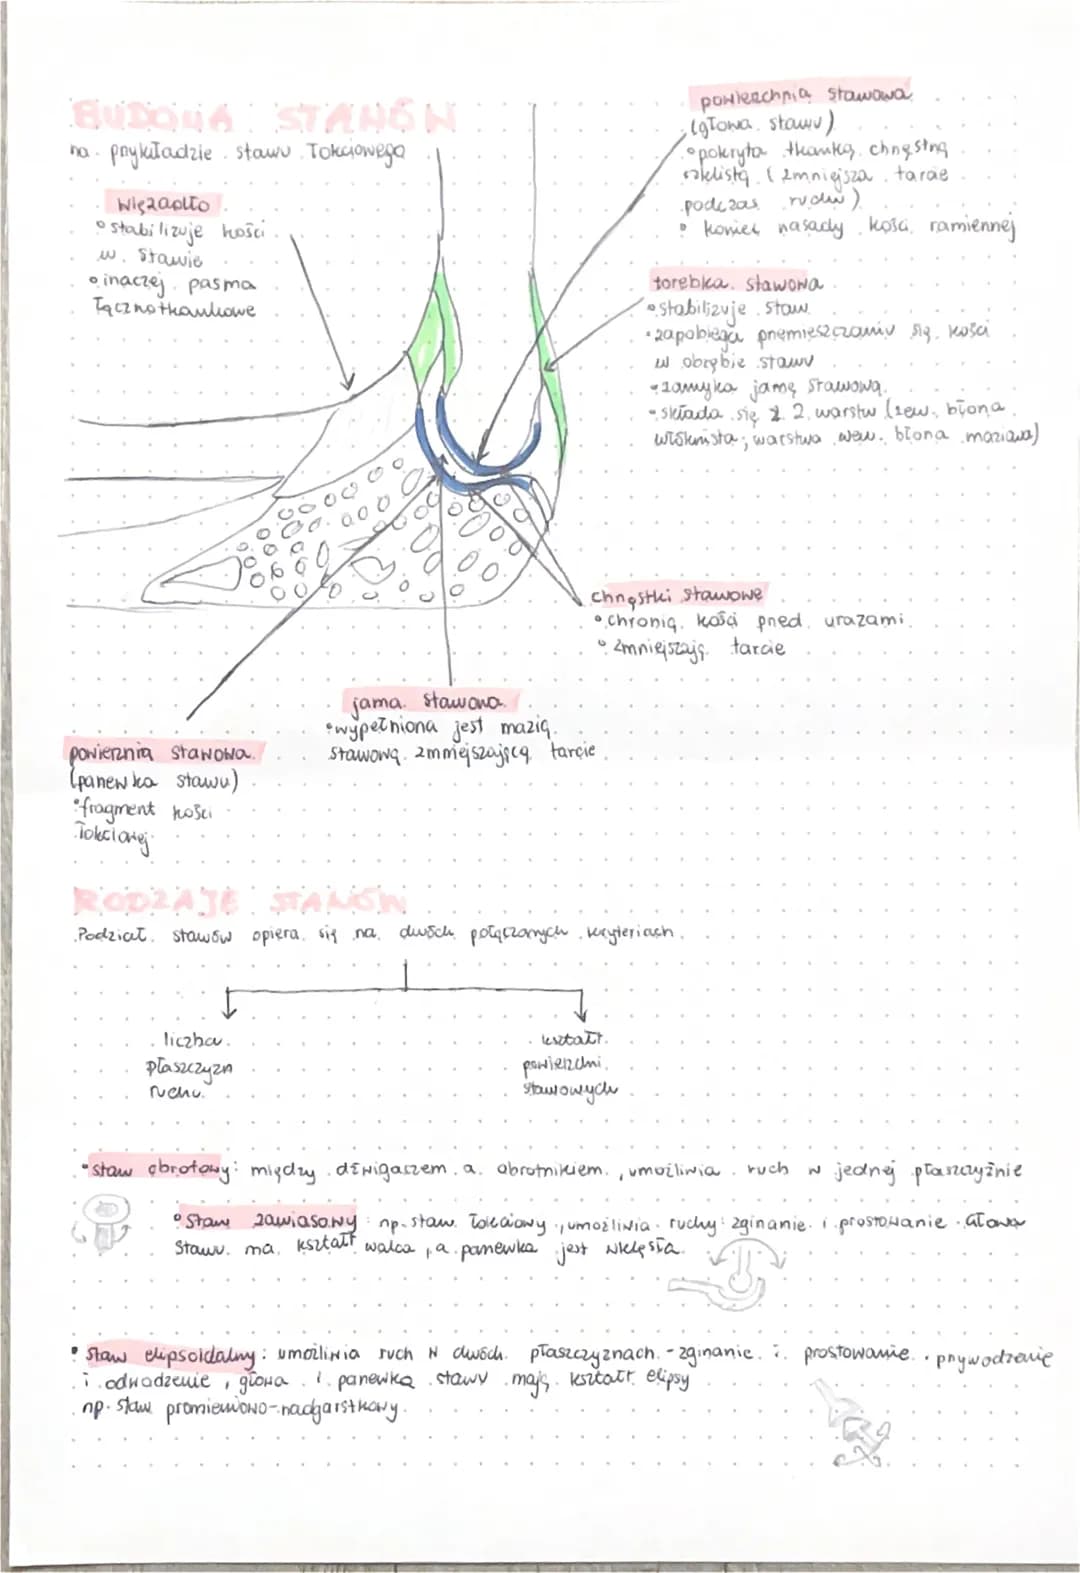 BUDOWA STAWÓW
na przykładzie stawu łokciowego
więzadło
• stabilizuje kości
w stawie
• inaczej pasma
łącznotkankowe
powierzchnia stawowa
(głowa stawu)
• pokryta tkanką chrzęstną
szklistą (zmniejsza tarcie
podczas ruchu)
• koniec nasady kości ramiennej
torebka stawowa
• stabilizuje staw
• zapobiega przemieszczaniu się kości
w obrębie stawu
• zamyka jamę stawową
• składa się z 2 warstw (zew. błona
włóknista, warstwa wew. błona maziowa)
chrząstki stawowe
• chronią kości przed urazami
• zmniejszają tarcie
jama stawowa
• wypełniona jest mazią
stawową zmniejszającą tarcie
powierznia stawowa
(panewka stawu)
• fragment kości
łokciowej
RODZAJE STAWÓW
Podział stawów opiera się na dwóch połączonych kryteriach
liczba
płaszczyzn
ruchu
kształt
powierzchni
stawowych
• staw obrotowy: między dźwigaczem a obrotnikiem, umożliwia ruch w jednej płaszczyźnie
• Staw zawiasowy: np. staw łokciowy, umożliwia ruchy: zginanie i prostowanie. Głowa
stawu ma kształt walca, a panewka jest wklęsła.
• staw elipsoidalny: umożliwia ruch w dwóch płaszczyznach - zginanie i prostowanie, przywodzenie
i odwodzenie, głowa i panewka stawu mają kształt elipsy
np. staw promieniowo-nadgarstkowy